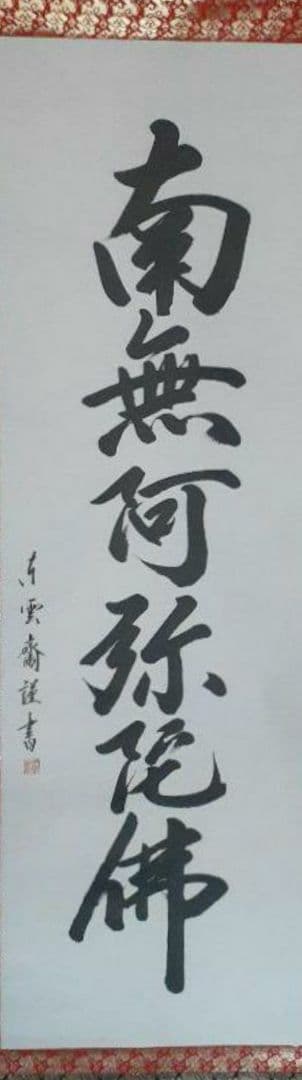 南無阿弥陀佛
東雲齋謹書